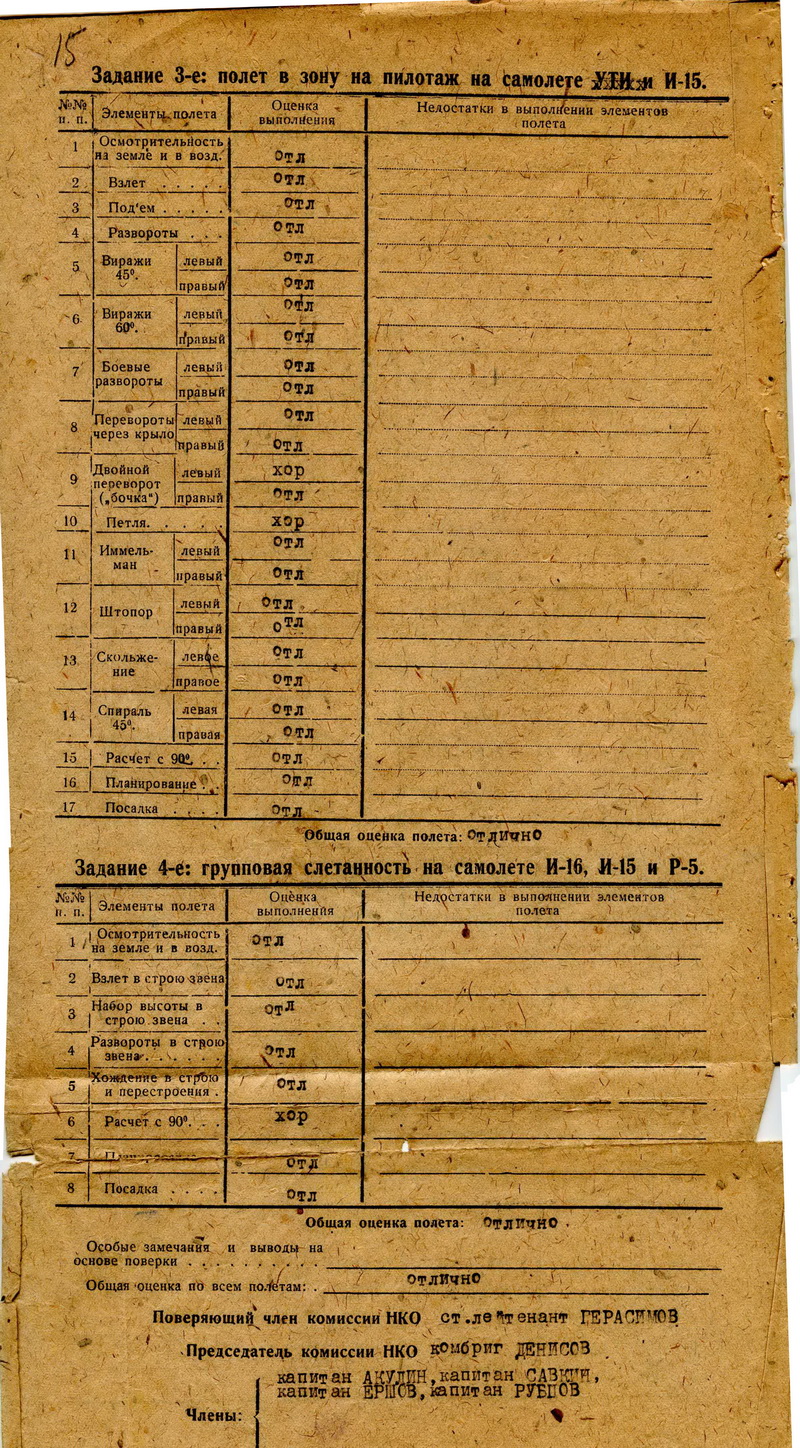 15
Задание 3-е: полет в зону на пилотаж на самолете УТИ и И-15.
№№ п. п. Элементы полета Оценка выполнения Недостатки в выполнении элементов полета
1 Осмотрительность на земле и в возд. отл
2 Взлет . . . . . отл
3 Под'ем . . . . . отл
4 Развороты . . . отл
5 Виражи 45°. левый отл
правый отл
6 Виражи 60°. левый отл
правый отл
7 Боевые развороты левый отл
правый отл
8 Перевороты через крыло левый отл
правый отл
9 Двойной переворот („бочка“) левый хор
правый отл
10 Петля. . . . . хор
11 Иммельман левый отл
правый отл
12 Штопор левый отл
правый отл
13 Скольжение левое отл
правое отл
14 Спираль 45°. левая отл
правая отл
15 Расчет с 90°. . . отл
16 Планирование . . отл
17 Посадка . . . . отл
Общая оценка полета: отлично
Задание 4-е: групповая слетанность на самолете И-16, И-15 и Р-5.
№№ п. п. Элементы полета Оценка выполнения Недостатки в выполнении элементов полета
1 Осмотрительность на земле и в возд. отл
2 Взлет в строю звена отл
3 Набор высоты в строю звена . . отл
4 Развороты в строю звена . . . . . отл
5 Хождение в строю и перестроения . отл
6 Расчет с 90°. . . хор
7 отл
8 Посадка . . . . отл
Общая оценка полета: отлично .
Особые замечания и выводы на
основе поверки . . . . . . . . . .
Общая оценка по всем полетам: . отлично
Поверяющий член комиссии НКО ст.лейтенант ГЕРАСИМОВ
Председатель комиссии НКО комбриг ДЕНИСОВ
капитан АКУЛИН,капитан САВКИН,
капитан ЕРШОВ,капитан РУБЦОВ
Члены: